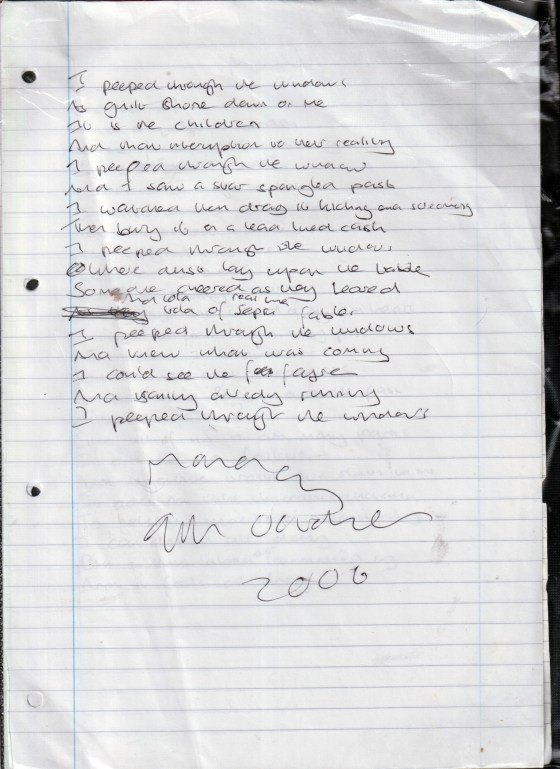 I peeped through the windows
As guilt shone down on me
It is the children
And their interruption to their reality
I peeped through the window
And I saw a star spangled past
I watched them drag it kicking and screaming
Then bury it in a lead lined cask
I peeped through the windows
Where dust lay upon the table
Someone cheered as they leared
And told
told of fables
I peeped through the windows
And knew what was coming
I could see the
And already running
I peeped through the windows
Monday
9th October
2006